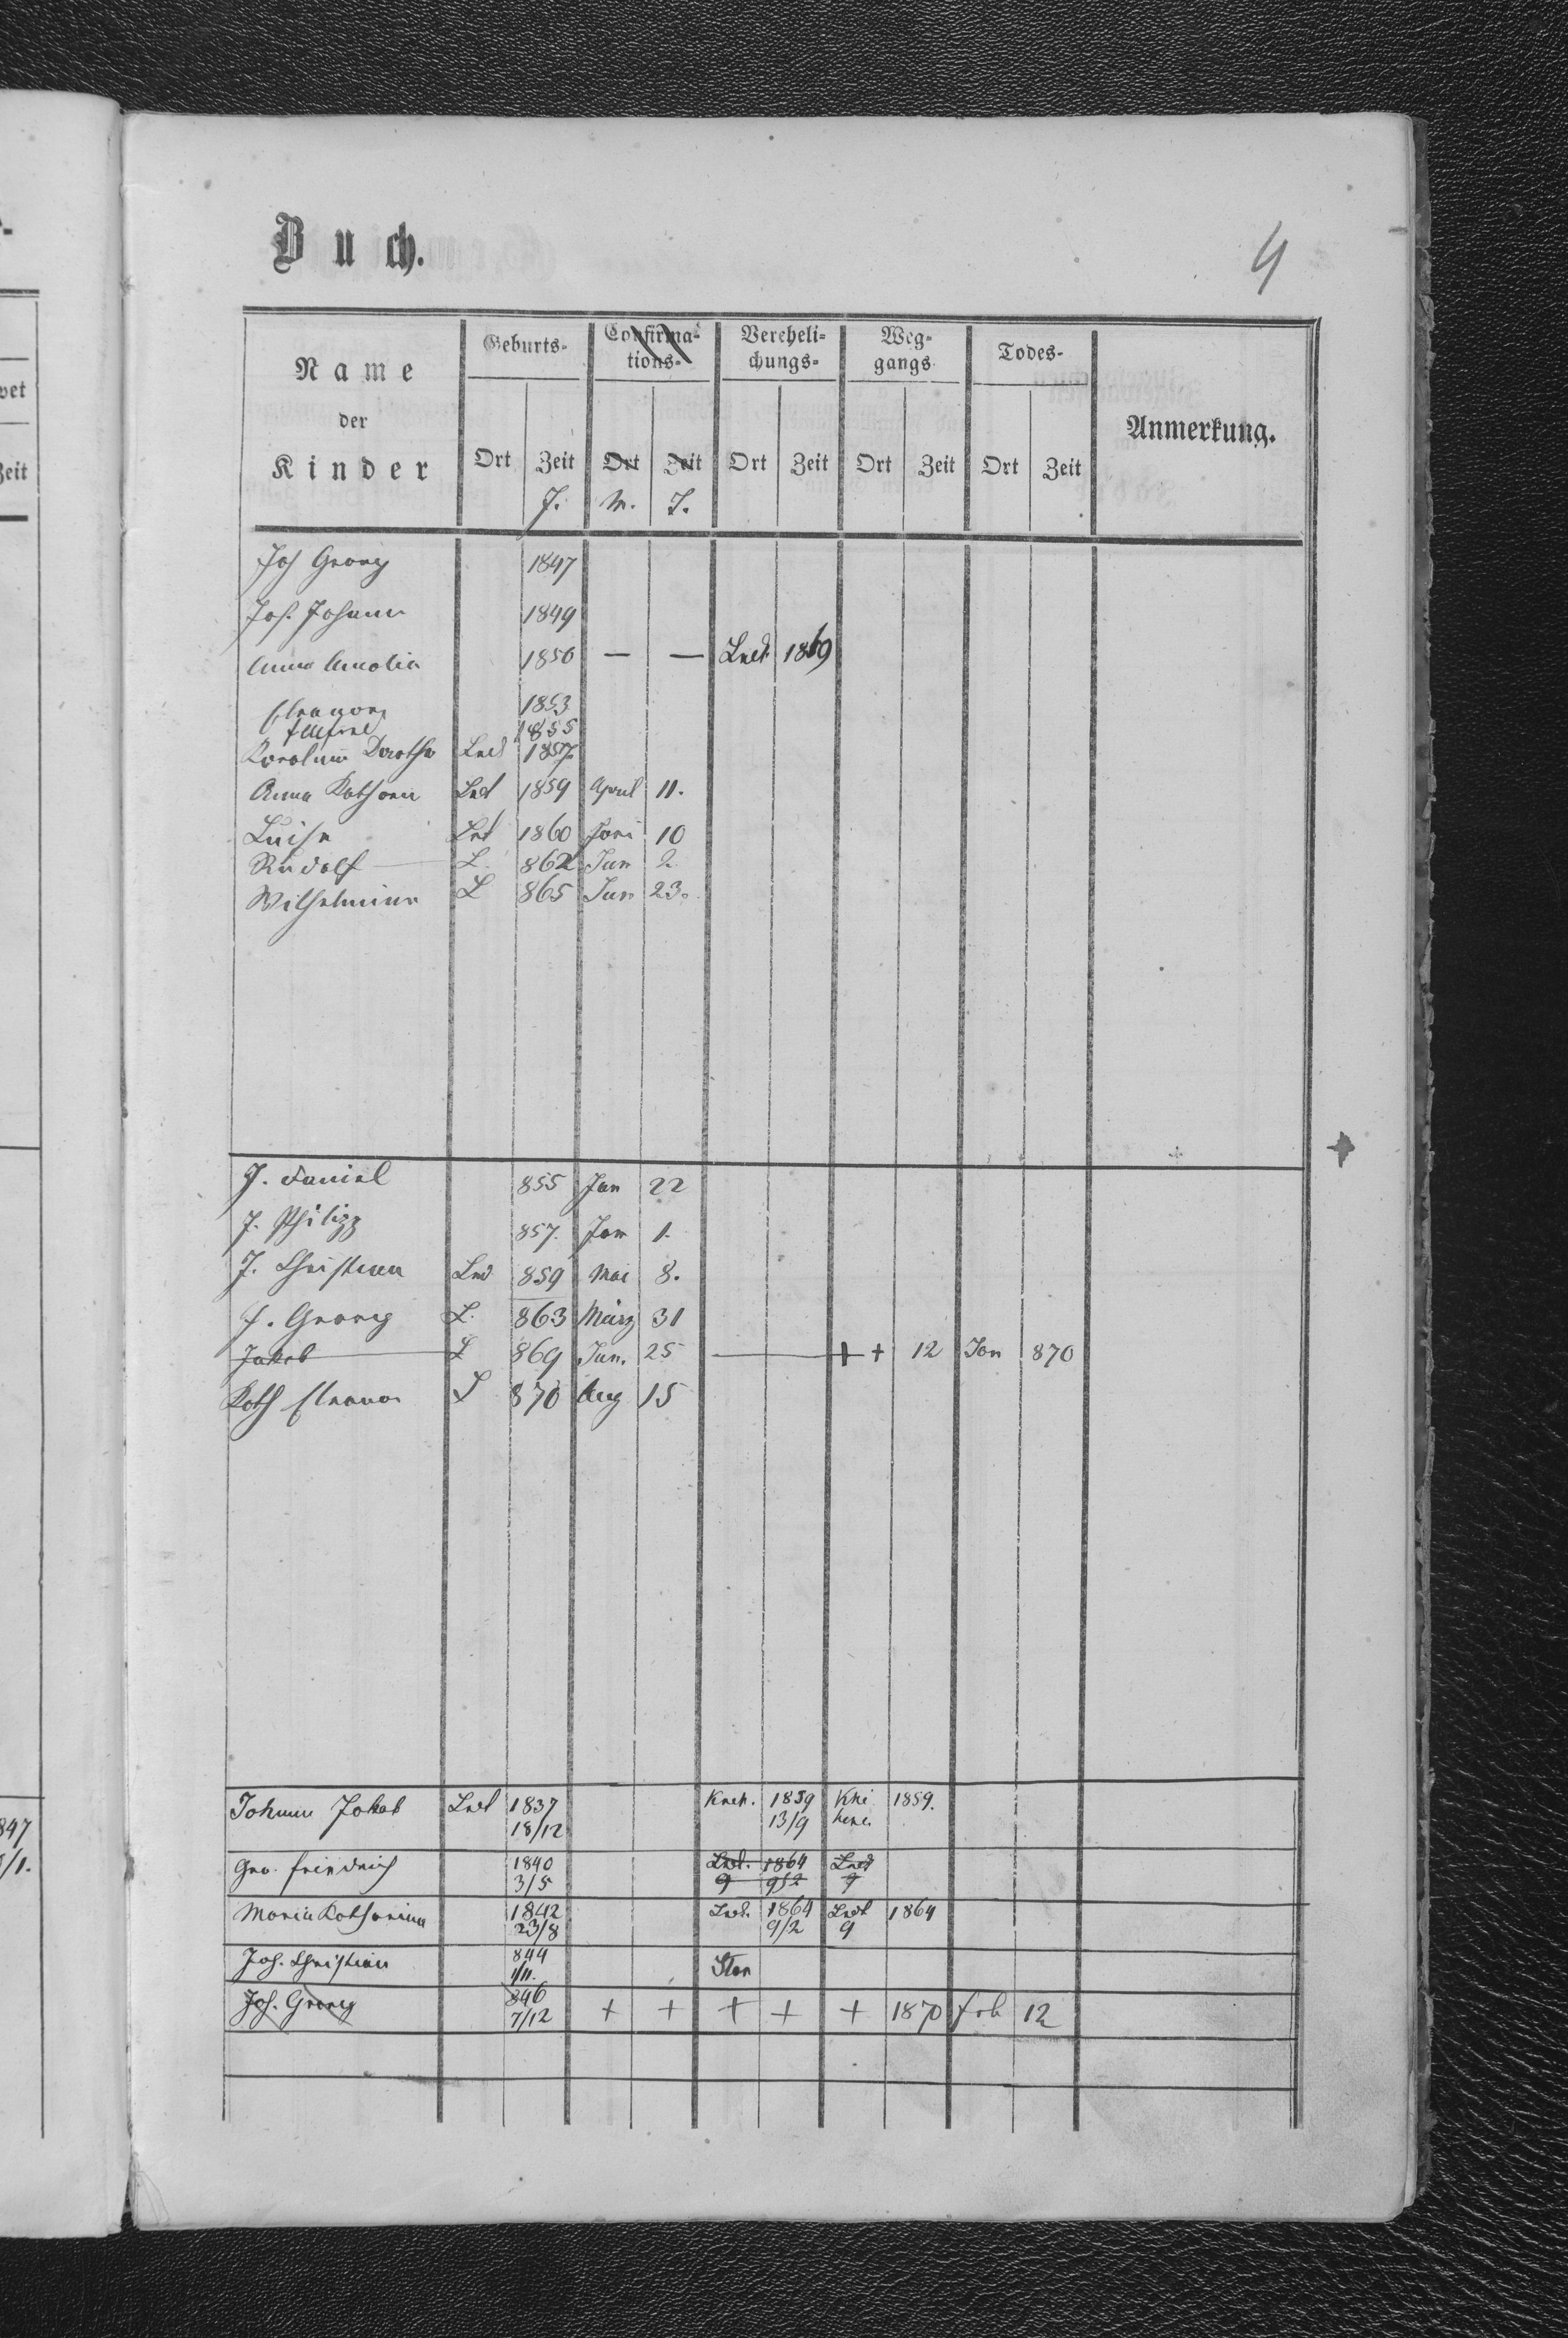 Buch.
4
Name der Kinder
Geburts- Confirma-tions- Vereheli-chungs- Weg-gangs Todes- Anmerkung.
Ort Zeit Ort Zeit Ort Zeit Ort Zeit Ort Zeit
J. M. T.
Joh Georg 1847
Joh. Johann 1849
Anna Amalia 1850 — — Lndt 1869
Eleanor 1853
1855
Karolina Doroth Lndt 1857
Anna Kathar Lndt 1859 April 11.
Luise Lndt 1860 10
Rudolf L. 862 Jun 2
Wilhelmine L 865 Jun 23.
J. Daniel 855 Jan 22
J. Philipp 857. Jan 1.
J. Christian Lnd 859 Mai 8.
J. Georg L. 863 März 31
Jakob L 869 Jun. 25 + + 12 Jan 870
Kath Eleanor L 870 Aug 15
Johann Jakob Lndt 1837 Knch. 1859 1859.
18/12 13/9
Geo. Friedrich 1840 Lndt. 1864 Lndt
3/5 9 9/2 9
Maria Katharina 1842 Lndt. 1864 Lndt 1864
23/8 9/2 9
Joh. Christian 844
1/11.
Joh. Georg 846 + + + + + 1870 Feb 12
7/12
vet
Zeit
847
/1.